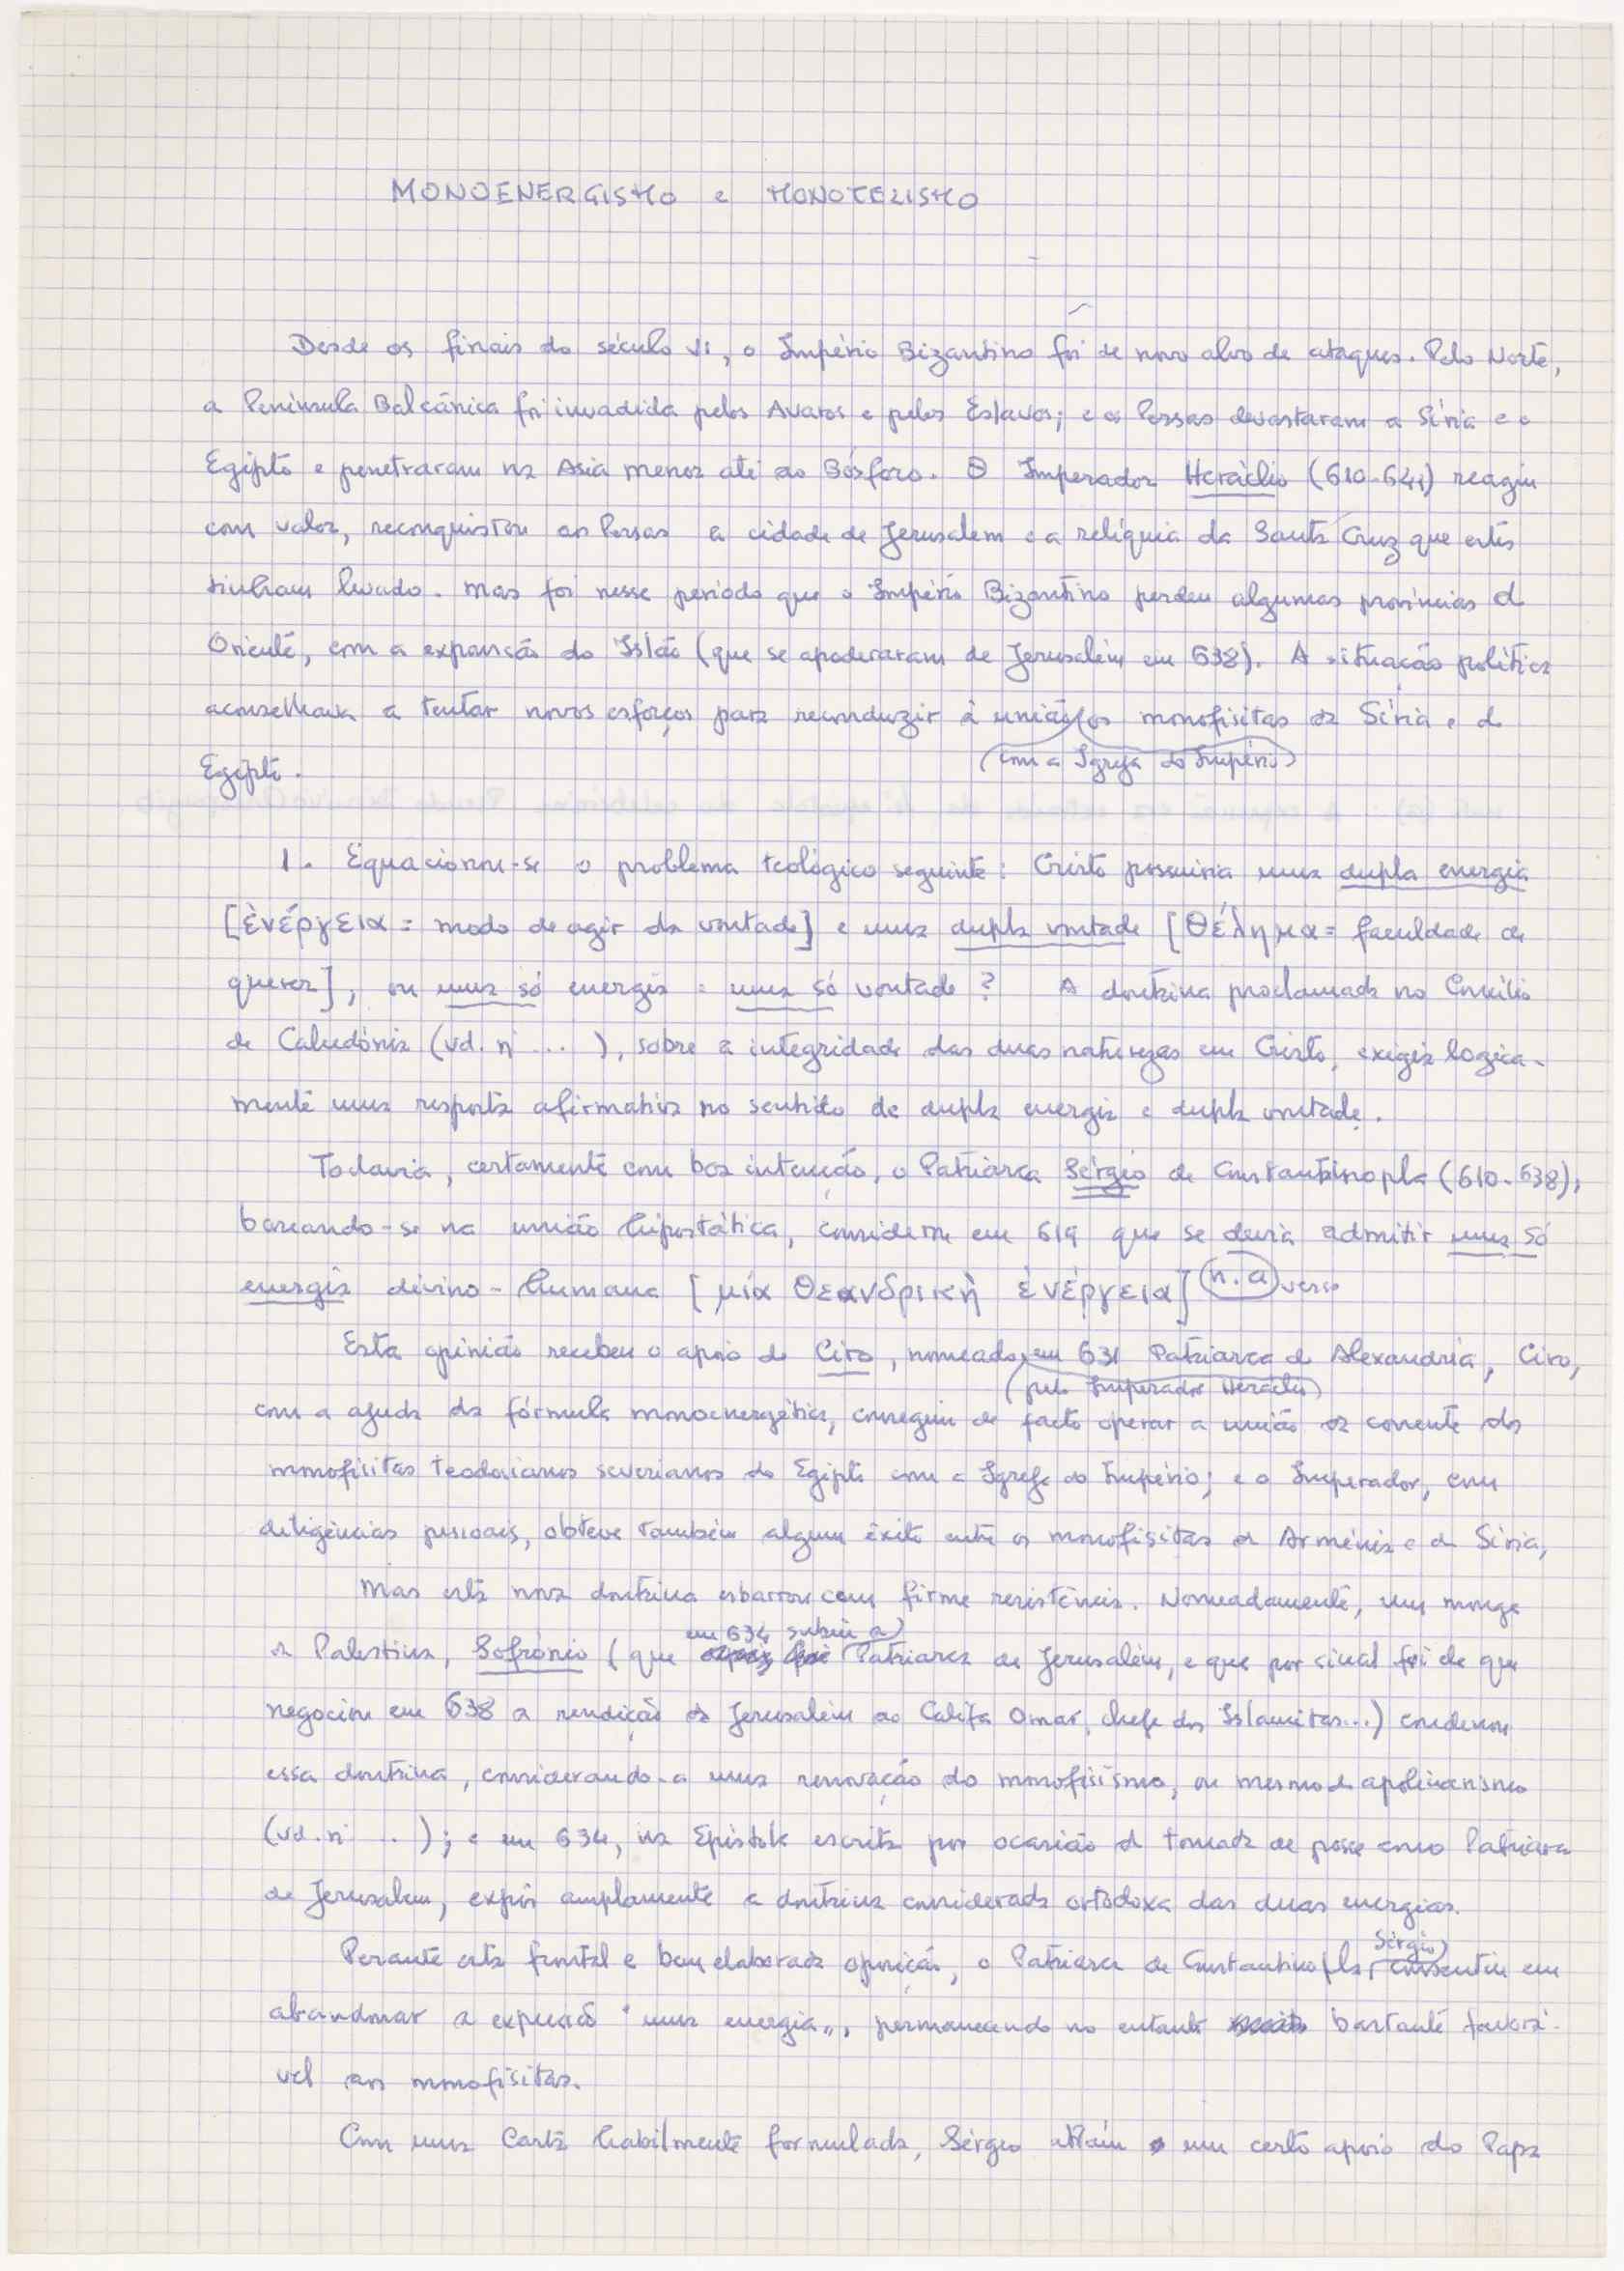 MONOENERGISMO e MONOTELISMO
Desde os finais do século VI, o Império Bizantino foi de novo alvo de ataques. Pelo Norte,
a Península Balcânica foi invadida pelos Avaros e pelos Eslavos; e os Persas devastaram a Síria e o
Egipto e penetraram na Asia menor até ao Bósforo. O Imperador Heráclio (610-641) reagiu
com valor, reconquistou aos Persas a cidade de Jerusalem e a relíquia da Santa Cruz que estes
tinham levado. Mas foi nesse período que o Império Bizantino perdeu algumas províncias do
Oriente, com a expansão do Islão (que se apoderaram de Jerusalém em 638). A situação política
aconselhava a tentar novos esforços para reconduzir à união os monofisitas da Síria e do
(com a Igreja do Império)
Egipto.
1. Equacionou-se o problema teológico seguinte: Cristo possuiria uma dupla energia
[ἐνέργεια = modo de agir da vontade] e uma dupla vontade [θέλημα = faculdade de
querer], ou uma só energia e uma só vontade? A doutrina proclamada no Concílio
de Calcedónia (vd. nº ... ), sobre a integridade das duas naturezas em Cristo, exigia logica-
mente uma resposta afirmativa no sentido de dupla energia e dupla vontade.
Todavia, certamente com boa intenção, o Patriarca Sérgio de Constantinopla (610-638),
baseando-se na união hipostática, considerou em 619 que se devia admitir uma só
energia divino-humana [μία θεανδρική ἐνέργεια] (n. a) verso
Esta opinião recebeu o apoio de Ciro, nomeado em 631 Patriarca de Alexandria, Ciro,
(pelo Imperador Heraclio)
com a ajuda da fórmula monoenergética, conseguiu de facto operar a união da corrente dos
monofisitas teodosianos severianos do Egipto com a Igreja do Império; e o Imperador, com
diligências pessoais, obteve também algum êxito entre os monofisitas da Arménia e da Síria,
Mas esta nova doutrina esbarrou com firme resistência. Nomeadamente, um monge
em 634 subiu a)
da Palestina, Sofrónio (que Patriarca de Jerusalém, e que por sinal foi ele que
negociou em 638 a rendição de Jerusalém ao Califa Omar, chefe dos Islamitas...) condenou
essa doutrina, considerando-a uma renovação do monofisismo, ou mesmo do apolinarismo
(vd. nº .. ); e em 634, na Epístola escrita por ocasião da tomada de posse como Patriarca
de Jerusalem, expôs amplamente a doutrina considerada ortodoxa das duas energias.
Perante esta frontal e bem elaborada oposição, o Patriarca de Constantinopla, consentiu em
Sérgio)
abandonar a expressão "uma energia", permanecendo no entanto bastante favorá-
vel aos monofisitas.
Com uma Carta habilmente formulada, Sérgio obtém um certo apoio do Papa